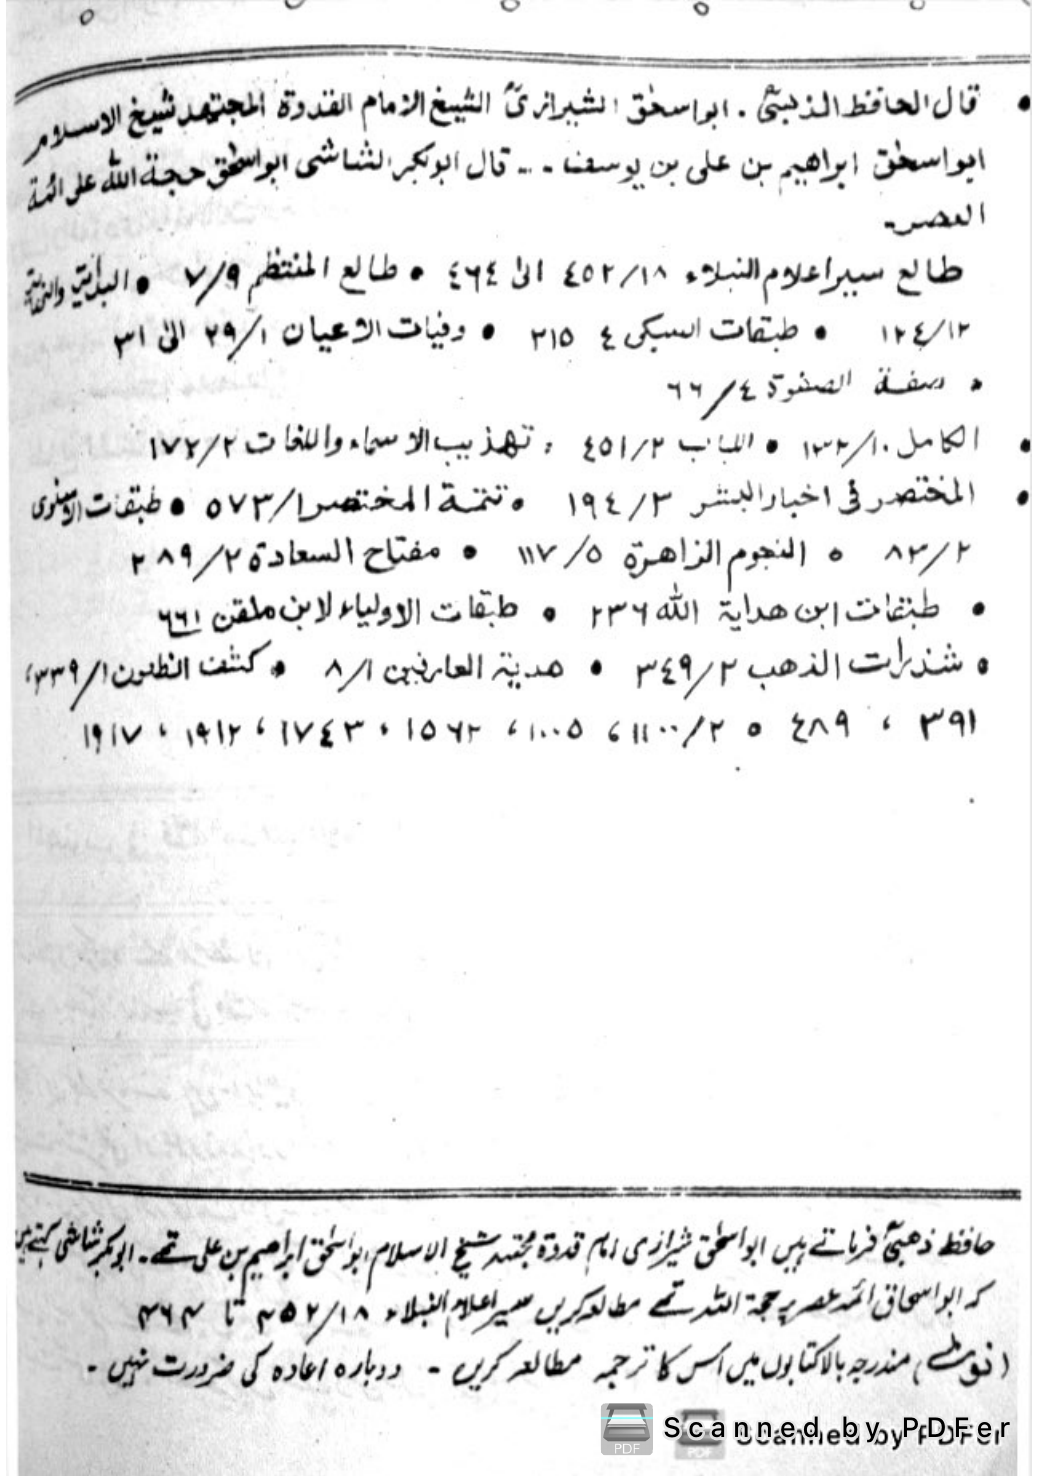 • قال الحافظ الذہبیؒ . ابو اسحٰق الشیرازیؒ الشیخ الامام القدوة المجتہد شیخ الاسلام
ابو اسحٰق ابراہیم بن علی بن یوسف - .. قال ابوبکر الشاشی ابو اسحٰق حجة اللہ علی ائمة
العصر-
طالع سیر اعلام النبلاء ١٨/٤٥٢ الیٰ ٤٦٤ • طالع المنتظم ٩/٧ • البدایة والنہایة
١٢/١٢٤ • طبقات السبکی ٤ ٢١٥ • وفیات الاعیان ١/٢٩ الیٰ ٣١
• صفة الصفوة ٤/٦٦
• الکامل ١٠/١٣٢ • اللباب ٢/٤٥١ • تہذیب الاسماء واللغات ٢/١٧٢
• المختصر فی اخبار البشر ٢/١٩٤ • تتمة المختصر ١/٥٧٣ • طبقات الاسنوی
٢/٨٣ • النجوم الزاہرة ٥/١١٧ • مفتاح السعادة ٢/٢٨٩
• طبقات ابن ہدایة اللہ ٢٣٦ • طبقات الاولیاء لابن ملقن ٦٦١
• شذرات الذہب ٢/٣٤٩ • ہدیة العارفین ١/٨ • کشف الظنون ١/٣٣٩،
٣٩١ ، ٤٨٩ • ٢/١١٠٠، ١٠٠٥، ١٥٦٢ ، ١٧٤٣ ، ١٩١٢ ، ١٩١٧
حافظ ذھبیؒ فرماتے ہیں ابو اسحٰق شیرازی امام قدوۃ مجتہد شیخ الاسلام ابو اسحٰق ابراھیم بن علی تھے۔ ابوبکر شاشی کہتے ہیں
کہ ابو اسحاق ائمہ عصر پر حجۃ اللہ تھے مطالعہ کریں سیر اعلام النبلاء ۱۸/۴۵۲ تا ۴۶۴
(نوٹ) مندرجہ بالا کتابوں میں اس کا ترجمہ مطالعہ کریں - دوبارہ اعادہ کی ضرورت نہیں -
Scanned by PDFer
Scanned by PDFer